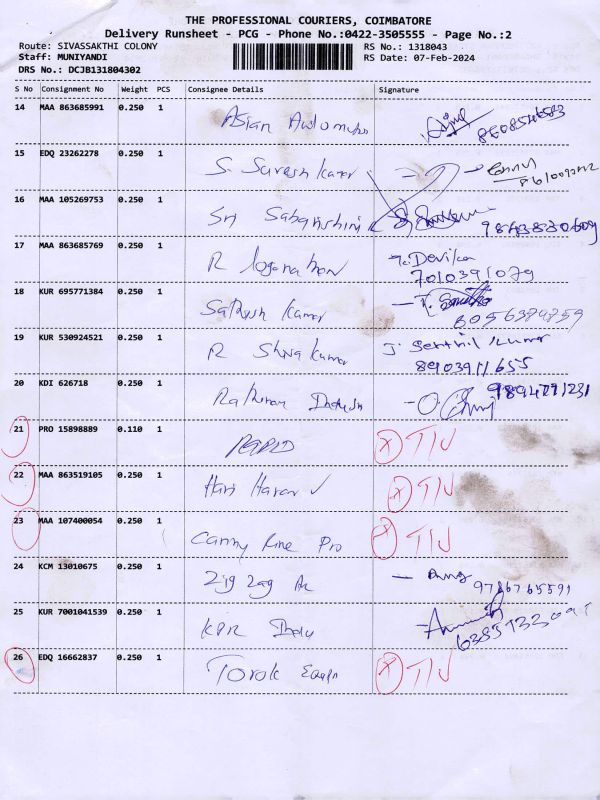 THE PROFESSIONAL COURIERS, COIMBATORE
Delivery Runsheet - PCG - Phone No.:0422-3505555 - Page No.:2
Route: SIVASSAKTHI COLONY RS No.: 1318043
Staff: MUNIYANDI RS Date: 07-Feb-2024
DRS No.: DCJB131804302
S No Consignment No Weight PCS Consignee Details Signature
14 MAA 863685991 0.250 1 Asian
15 EDQ 23262278 0.250 1 S. Suresh Kumar
16 MAA 105269753 0.250 1 Sri
17 MAA 863685769 0.250 1 R Loganathan Devika
7010391079
18 KUR 695771384 0.250 1 Sathish Kumar
8056384859
19 KUR 530924521 0.250 1 R Shiva Kumar J. Senthil Kumar
8903911655
20 KDI 626718 0.250 1
21 PRO 15898889 0.110 1 TIJ
22 MAA 863519105 0.250 1 Hari Haran TIJ
23 MAA 107400054 0.250 1 Fine Pro TIJ
24 KCM 13010675 0.250 1 Zig Zag
9786765591
25 KUR 7001041539 0.250 1 KPR
26 EDQ 16662837 0.250 1 Torok TIJ